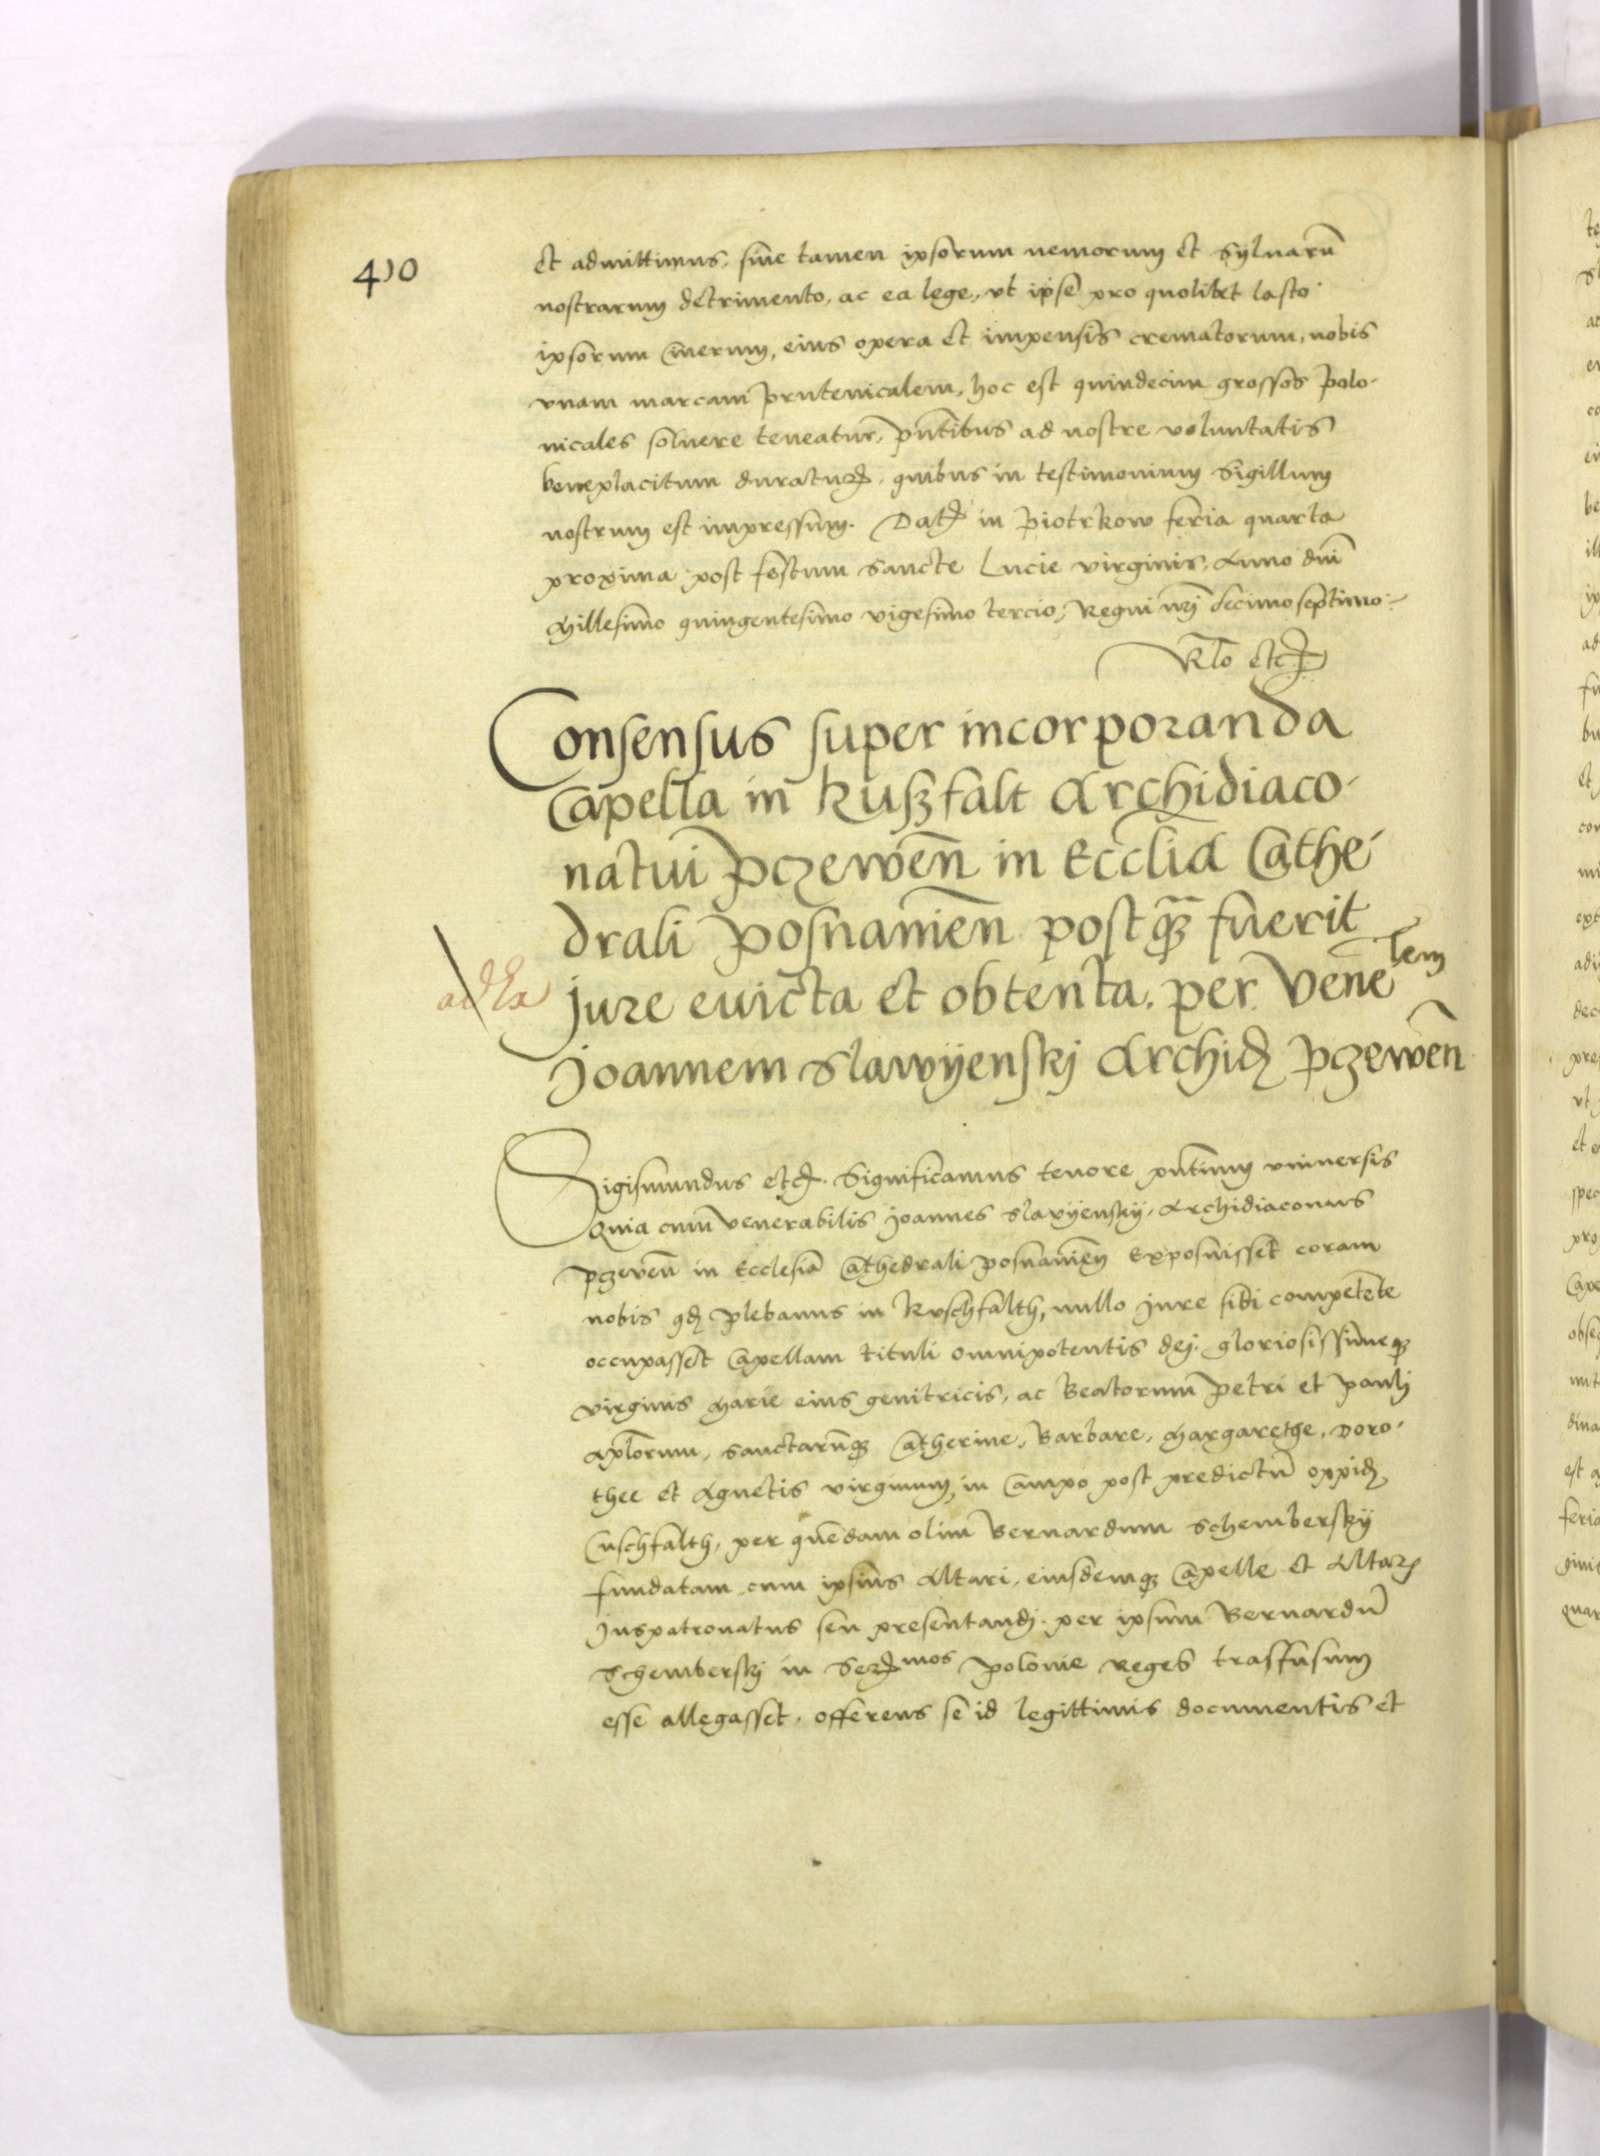 410
et admittimus, sine tamen ipsorum nemorum et sylvarū
nostrarum detrimento, ac ea lege, ut ipse pro quolibet lasto
ipsorum cinerum, eius opera et impensis crematorum, nobis
unam marcam prutenicalem, hoc est quindecim grossos polo-
nicales solvere teneatur, pñtibus ad nostre voluntatis
beneplacitum duratur. quibus in testimonium Sigillum
nostrum est impressum. Dat in Piotrkow feria quarta
proxima post festum Sancte Lucie virginis, Anno dñi
Millesimo quingentesimo vigesimo tercio, Regni nrj decimo septimo.
Rlo etc
Consensus super incorporanda
Capella in Kuszfalt Archidiaco-
natui Pczewēn in Ecclīa Cathe-
drali Posnaniēn postq̄ fuerit
jure evicta et obtenta. per Venelem
Joannem Slawyenskj Archid Pczewēn
ad Ra
Sigismundus etc. Significamus tenore pñtium universis
Quia cum venerabilis Joannes Slavyenskij, Archidiaconus
Pczevēn in Ecclesia Cathedrali Posnaniēn Exposuisset coram
nobis qd plebanus in Kuschfalth, nullo Jure sibi competēte
occupasset Capellam tituli omnipotentis dej. gloriosissimeq
virginis Marie eius genitricis, ac Beatorum Petri et Paulj
Aplorum, Sanctarūq Catherine, Barbare, Margarethe, Doro-
thee et Agnetis virginum, in Campo post predictū oppid
Cuschfalth, per quēdam olim Bernardum Schemberskij
fundatam, cum ipsius Altari, eiusdemq Capelle et Altar
Juspatronatus seu presentandj. per ipsum Bernardū
Schemberskj in Sermos Polonie Reges trasfusum
esse allegasset, offerens se id legittimis documentis et